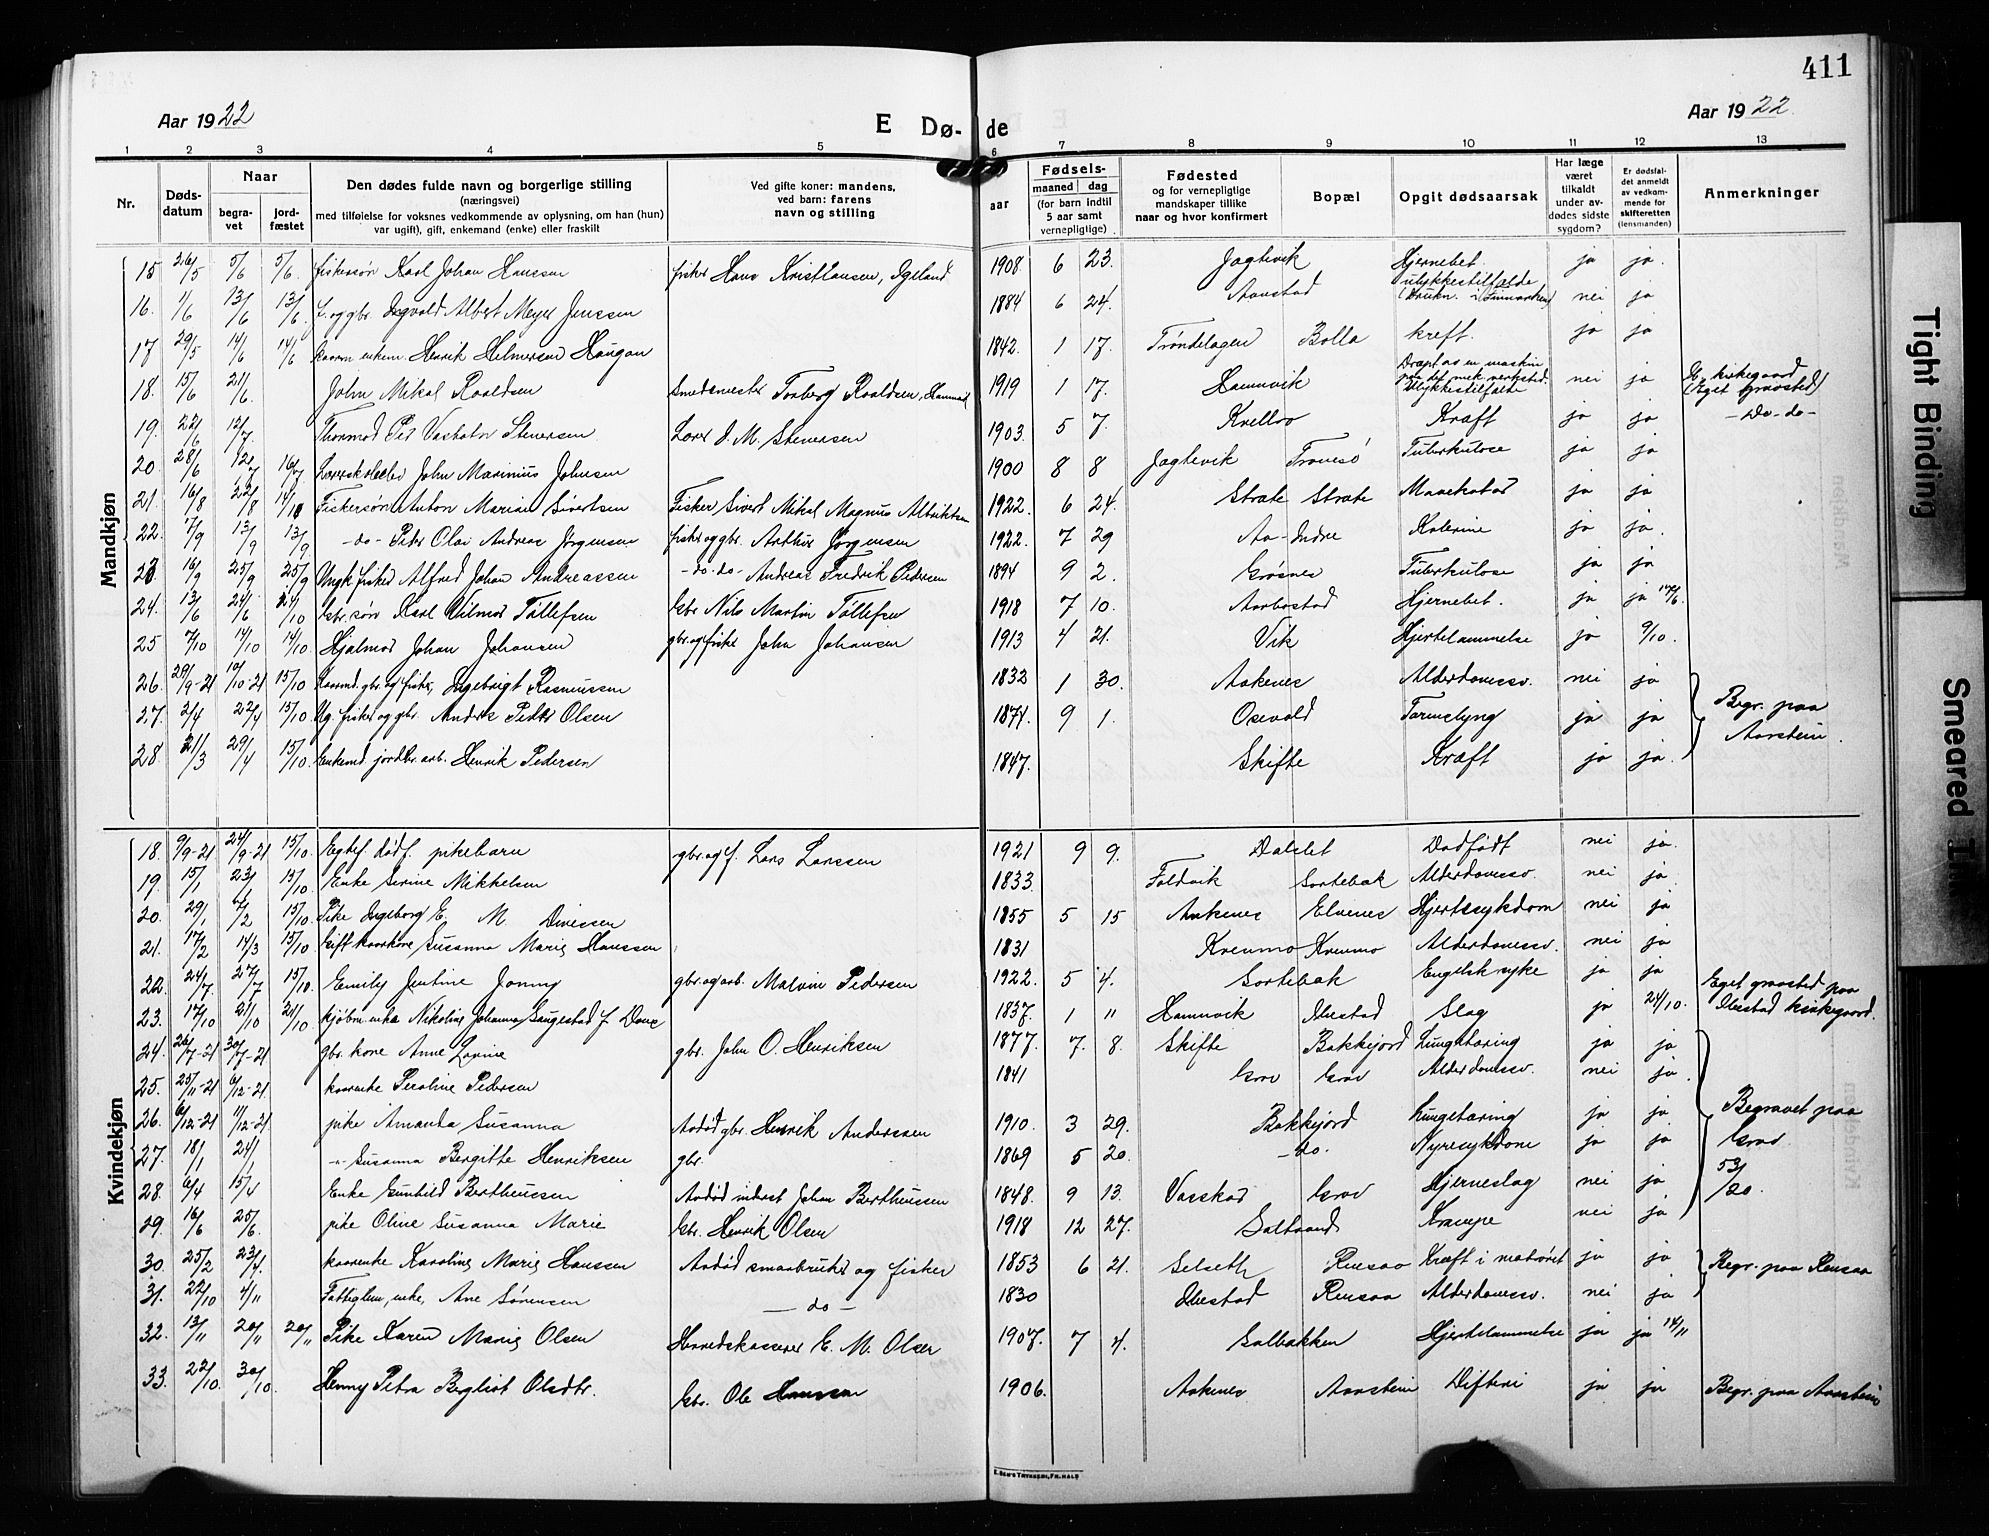 411
Aar 1922
E Dø-
de
Aar 1922.
1 2 3 4 5 6 7 8 9 10 11 12 13
Nr.
Døds-
datum
Naar
begra-
vet
jord-
fæstet
Den dødes fulde navn og borgerlige stilling
(næringsvei)
med tilføielse for voksnes vedkommende av oplysning, om han (hun)
var ugift), gift, enkemand (enke) eller fraskilt
Ved gifte koner: mandens,
ved barn: farens
navn og stilling
Fødsels-
aar
maaned dag
(for barn indtil
5 aar samt
vernepligtige)
Fødested
og for vernepligtige
mandskaper tillike
naar og hvor konfirmert
Bopæl
Opgit dødsaarsak
Har læge
været
tilkaldt
under av-
dødes sidste
sygdom?
Er dødsfal-
det anmeldt
av vedkom-
mende for
skifteretten
(lensmanden)
Anmerkninger
Mandkjøn
15 26/5 5/6 5/6 fiskersøn Karl Johan Hanssen fisker Hans Kristiansen, Igeland 1908 6 23. Hjernebet. ja ja.
16. 1/6 13/6 13/6 F. og gbr. Ingvald Albert Meyer Janssen 1884 6 24. Aanstad Ulykkestilfælde (Drukn. i Finmarken) nei ja
17 29/5 14/6 14/6 enkem. Henrik Helmersen Haugan 1842. 1 17. Trøndelagen Bolla kreft. ja ja
18. 15/6 21/6 John Mikal Roaldsen Smedmester Torberg Roaldsen, Hamnvik 1919 1 17. Hamnvik Dræpt av en maskin paa det mek. verksted. Ulykkestilfælde nei ja kirkegaard (Eget gravsted)
19. 22/6 12/7 Thormod Per Stenersen Lærer J. M. Stenersen 1903. 5 7. Kræft ja ja - Do - do -
20. 28/6 12/7 16/7 John Marinius Johnsen 1900 8 8 Tromsø Tuberkulose ja ja
21. 16/8 22/8 Fiskersøn Anton Marian Sivertsen Fisker Sivert Mikal Magnus Albriktsen 1922. 6 24. Strate Strate Mavekatar ja ja
22. 7/9 13/9 13/9 - do - Peder Olai Andreas Jørgensen fisker og gbr. Arthur Jørgensen 1922 7 29 Aa-Indre Kolerine ja ja.
23. 16/9 25/9 25/9 Ungk. fisker Alfred Johan Andreassen - do. do - Andreas Fredrik Pedersen 1894 9 2. Grøsnes Tuberkulose ja ja
24. 13/6 24/6 Gbr. søn Karl Vilmar Tollefsen Gbr. Nils Martin Tollefsen 1918 7 10. Aarbostad Hjernebet. ja ja 17/6.
25 7/10 14/10 14/10. Hjalmar Johan Johansen gbr. og fisker John Johansen 1913 4 21. Vik Hjertelammelse ja 9/10.
26. 29/9-21 10/10-21 15/10. gbr. og fisker, Ingebrigt Rasmussen 1832 1 30. Aakenes Alderdomssv. nei ja
27. 2/4 22/4 15/10. Ug. fisker og gbr. Anders Peder Olsen 1871 9 1. Osevold Tarmslyng ja ja Begr. paa Aarstein.
28. 21/3 29/4 15/10. Enkemd. jordbr. arb. Henrik Pedersen 1847. Skifte Kræft ja ja.
Kvindekjøn
18. 9/9-21 24/9-21 15/10. Egtef. dødf. pikebarn gbr. og f. Lars Larssen 1921 9 9. Dalslet Dødfødt nei ja.
19. 15/1 15/10. Enke Serine Mikkelsen 1833. Foldvik Sortebak Alderdomssv. nei ja
20. 29/1 15/10. Pike Ingeborg E. M. Dinessen 1855 5 15 Aakenes Elvenes Hjertesykdom nei ja
21. 17/2 14/3 15/10. Gift kaarkone Susanna Marie Hanssen 1831 Krenmo Krenmo Alderdomssv. nei ja
22. 24/7 27/7 15/10. Emily Jentine Jonny gbr. og arb. Malvin Pedersen 1922. 5 4. Sortebak Engelsk syke ja ja
23. 17/10 21/10 21/10. kjøbm. enke Nikoline Johanna Saugestad f. Done 1837. 1 " Hamnvik Ibestad Slag ja 24/10. Eget gravsted paa Ibestad kirkegaard.
24. 26/7-21 30/7-21 gbr. kone Anne Lovine gbr. John O. Henriksen 1877. 7. 8. Skifte Bakkejord Lungetæring ja ja
25. 25/11-21 6/12-21 kaarenke Peroline Pedersen 1841 Grov Grov Alderdomssv. nei ja.
26. 6/12-21 11/12-21 pike Amanda Susanna Avdød gbr. Henrik Anderssen 1910. 3 29. Bakkejord Lungetæring ja ja Begravet paa Grov 53/20.
27. 18/1 24/1 -"- Susanna Bergitte Henriksen gbr. 1869 5 20. - do. Nyresykdom ja ja
28. 6/4 15/4 Enke Gunhild Bertheussen Avdød inderst Johan Bertheussen 1848. 9 13. Vasskar Grov Hjerneslag nei ja
29. 16/6 25/6. pike Oline Susanna Marie Gbr. Henrik Olsen 1918 12 27. Saltvand Krampe nei ja
30. 25/2 23/4. kaarenke Karoline Marie Hanssen Avdød smaabruker og fisker 1853 6 21. Selseth Rensaa Kræft i matrøret ja ja Begr. paa Rensaa
31. 22/10 4/11 Fattiglem, enke, Ane Sørensen - do - 1830 Ibestad Rensaa Alderdomssv. nei ja
32. 13/11 20/11 20/11 Pike Karen Marie Olsen Herredskasserer E. M. Olsen 1907. 7 4. Solbakken Hjertelammelse ja ja 14/11
33. 22/10 30/10. Henny Petra Bergliot Olsdtr. Gbr. Ole Hanssen 1906. Aakenes Aarstein Difteri ja ja Begr. paa Aarstein
E. SEM'S TRYKKERI, FR.HALD
Tight Binding
Smeared Ink